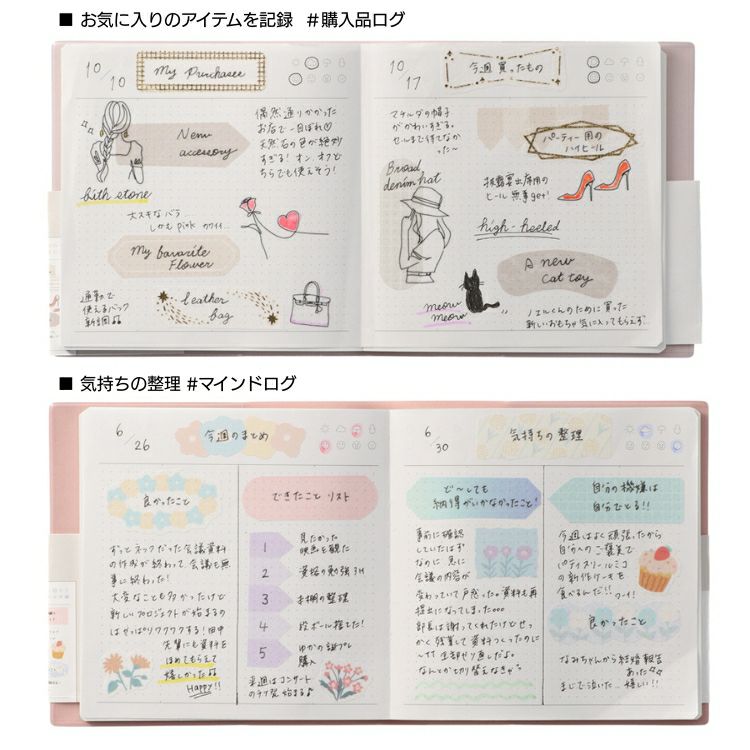 ■ お気に入りのアイテムを記録 #購入品ログ
10/10
My Purchases
New
accessory
偶然通りかかった
お店で一目ぼれ♡
天然石の色が絶妙
すぎる! オン、オフど
ちらでも使えそう!
bith stone
大スキなバラ
しかも pink カワイイ…
My favarite
Flower
通勤で
使えるバック
新調♫
leather
bag
10/17
今週買ったもの
マチルダの帽子
がかわいすぎる。
セールまで待てなか
った〜
パーティー用の
ハイヒール
Broad
denim hat
披露宴出席用の
ヒール無事get!
high-heeled
A new
Cat toy
meow
meow
ノエルくんのために買った
新しいおもちゃ気に入ってもらえず…
■ 気持ちの整理 #マインドログ
6/26
今週のまとめ
良かったこと
ずっとネックだった会議資料
の作成が終わって、会議も無
事に終わった!
大変なことも多かったけど
新しいプロジェクトが始まるの
はやっぱりワクワクする! 田中
先輩にも資料を
ほめてもらえて
嬉しかった♫
Happy!!
できたこと リスト
1 見たかった
映画を観た
2 資格の勉強 3H
3 本棚の整理
4 段ボール捨てた!
5 ゆかの
購入
来週はコンサート
のチケ発 始まる♪
6/30
気持ちの整理
ど〜しても
納得がいかなかったこと!
事前に確認
していたはず
なのに 急に
会議の内容が
変わっていて戸惑った。資料も再
提出になってしまった…
部長は謝ってくれたけどせっ
かく残業して資料つくったのに
〜 全部やり直しだよ。
なんとか切り替えなきゃ〜
自分の機嫌は
自分でとる!!
今週はよく頑張ったから
自分へのご褒美で
パティスリールミコ
の新作ケーキを
食べるんだ!! ワーイ!
良かったこと
なみちゃんから結婚報告
あった
まじで泣いた… 嬉しい!!